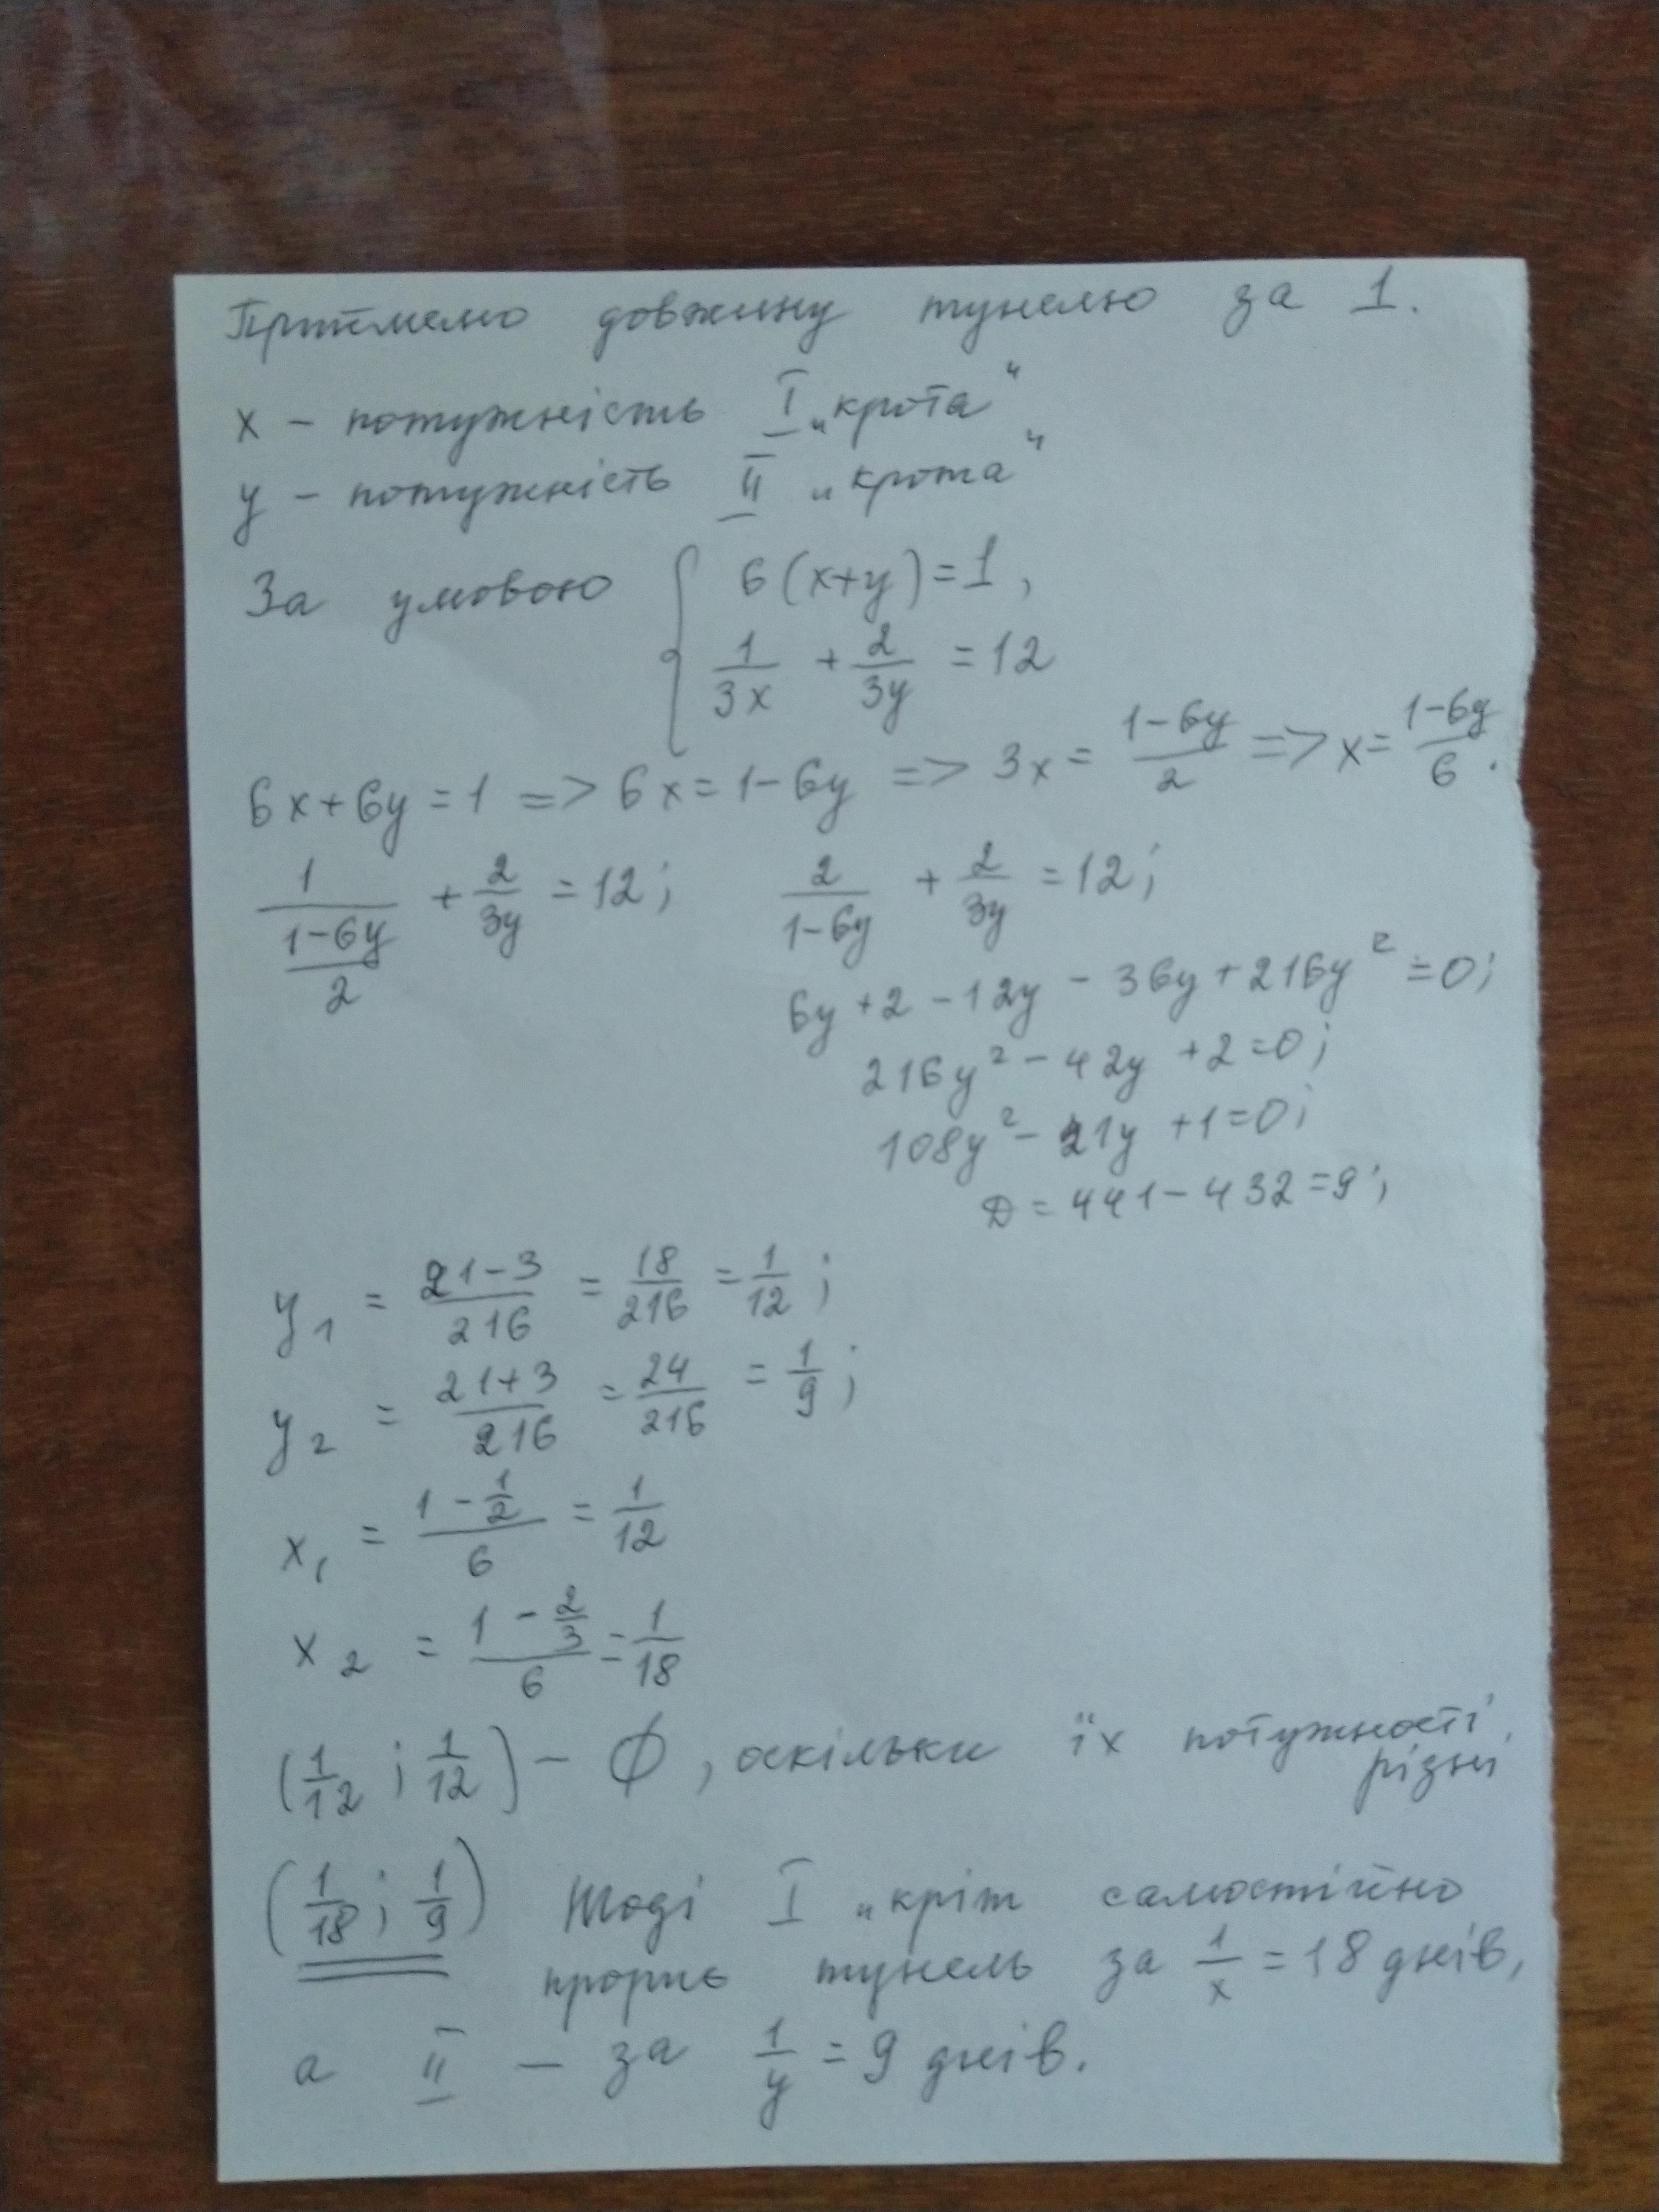 Приймемо довжину тунелю за 1.
x – потужність I „крота“
y – потужність II „крота“
За умовою { 6(x+y)=1,
1/3x + 2/3y = 12
6x+6y=1 => 6x=1-6y => 3x = (1-6y)/2 => x = (1-6y)/6.
1/((1-6y)/2) + 2/3y = 12; 2/(1-6y) + 2/3y = 12;
6y+2-12y-36y+216y²=0;
216y²-42y+2=0;
108y²-21y+1=0;
D=441-432=9;
y₁ = (21-3)/216 = 18/216 = 1/12;
y₂ = (21+3)/216 = 24/216 = 1/9;
x₁ = (1-1/2)/6 = 1/12
x₂ = (1-2/3)/6 = 1/18
(1/12; 1/12) – ∅, оскільки їх потужності
різні
(1/18; 1/9) Тоді I „кріт самостійно
прориє тунель за 1/x = 18 днів,
а II – за 1/y = 9 днів.